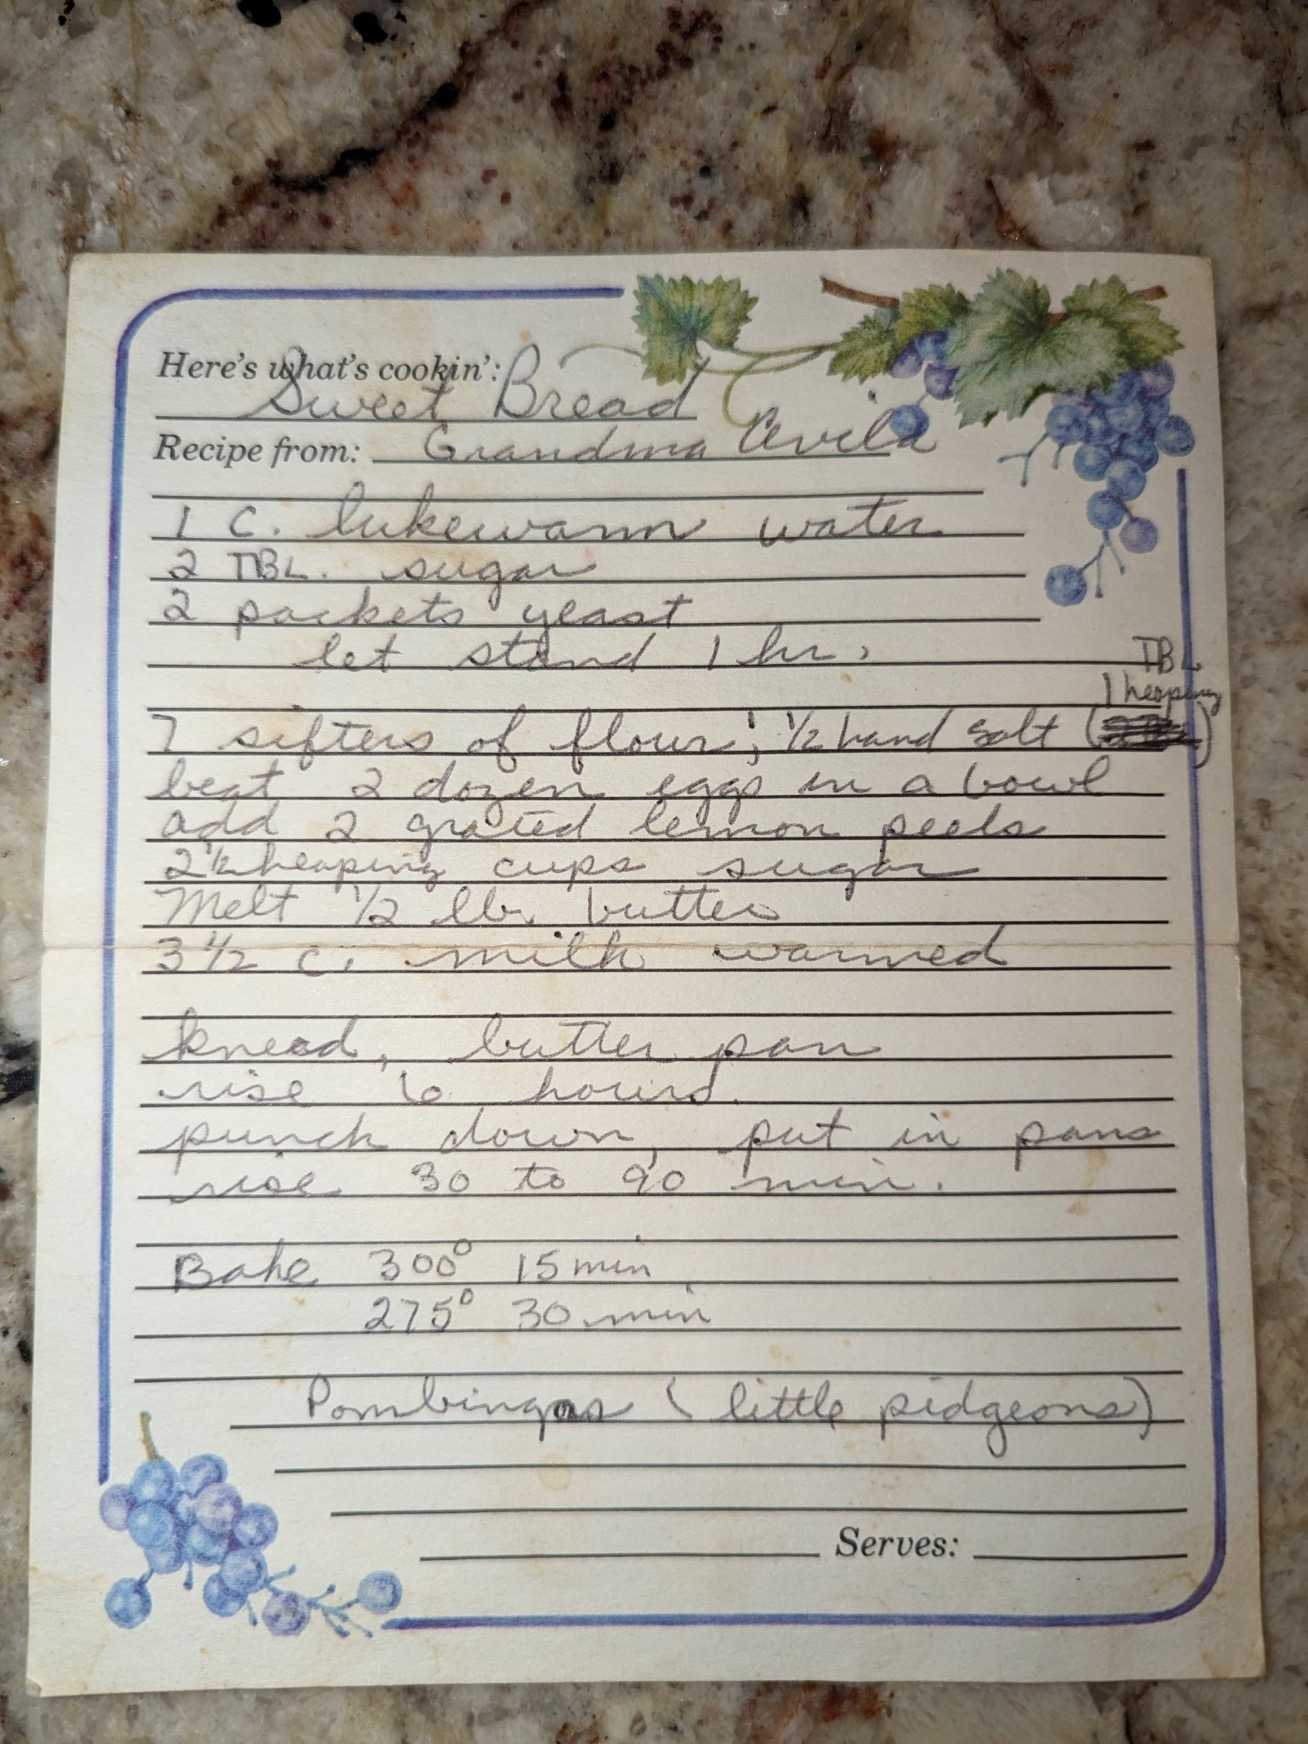 Here's what's cookin':
Sweet Bread
Recipe from: Grandma Avila
1 c. lukewarm water
2 TBL. sugar
2 packets yeast
let stand 1 hr.
TBL
1 heaping
7 sifters of flour; 1/2 hand salt ( )
beat 2 dozen eggs in a bowl
add 2 grated lemon peels
2 1/2 heaping cups sugar
Melt 1/2 lb. butter
3 1/2 c. milk warmed
knead, butter pan
rise 6 hours.
punch down, put in pans
rise 30 to 90 min.
Bake 300° 15 min
275° 30 min
Pombingas (little pidgeons)
Serves: